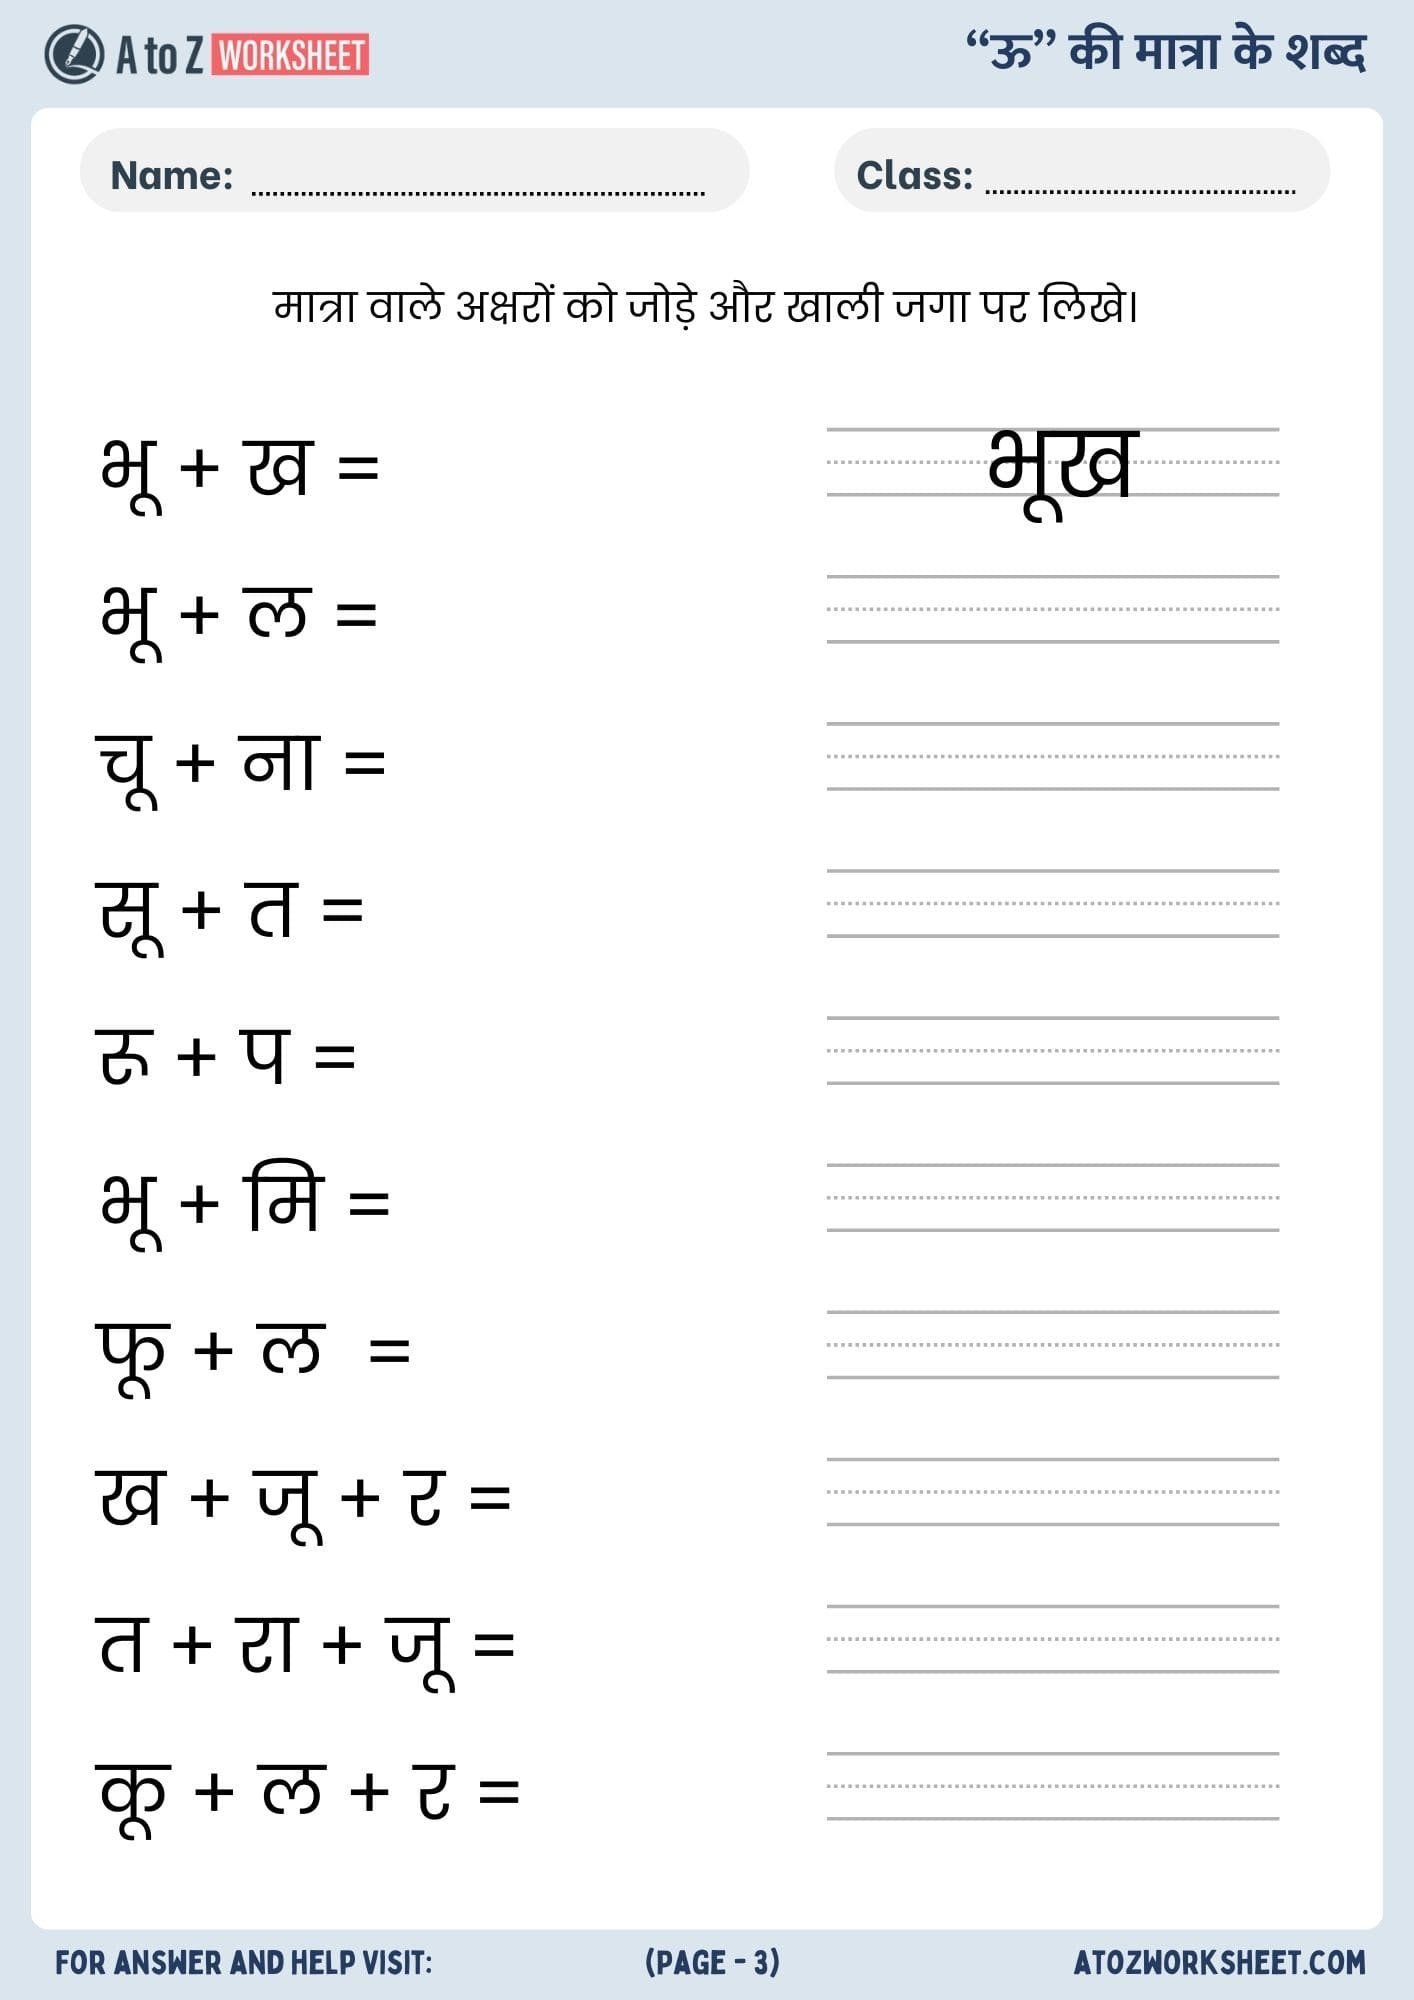 A to Z WORKSHEET
“ऊ” की मात्रा के शब्द
Name:
Class:
मात्रा वाले अक्षरों को जोड़े और खाली जगा पर लिखे।
भू + ख = भूख
भू + ल =
चू + ना =
सू + त =
रू + प =
भू + मि =
फू + ल =
ख + जू + र =
त + रा + जू =
कू + ल + र =
FOR ANSWER AND HELP VISIT: (PAGE - 3) ATOZWORKSHEET.COM